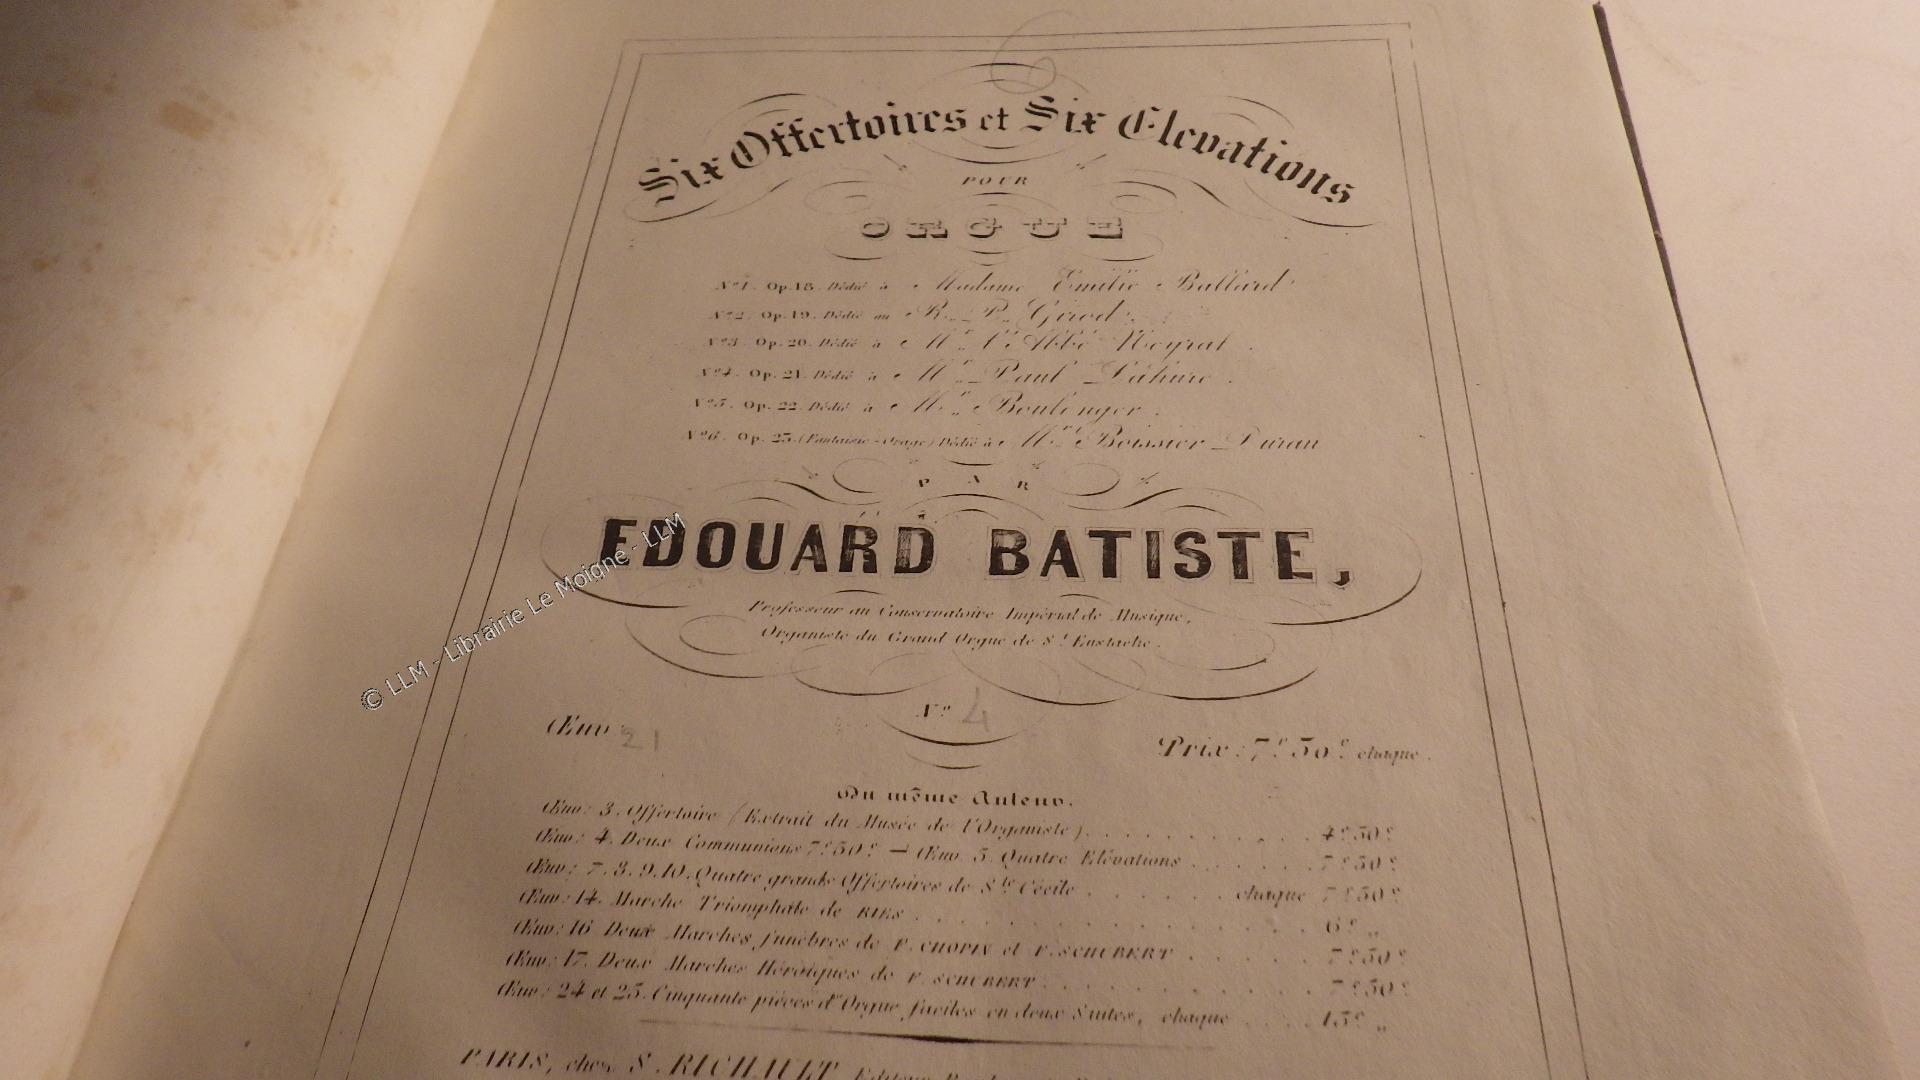 Six Offertoires et Six Elevations
POUR
ORGUE
Nº 1. Op. 18. Dédié à Madame Emilie Ballard
Nº 2. Op. 19. Dédié au R. P. Girod
Nº 3. Op. 20. Dédié à Mr. l'Abbé Neyrat.
Nº 4. Op. 21. Dédié à Mr. Paul Lahure.
Nº 5. Op. 22. Dédié à Mr. Boulenger.
Nº 6. Op. 23. (Fantaisie-Orage) Dédié à Boissier-Duran
PAR
EDOUARD BATISTE,
Professeur au Conservatoire Impérial de Musique,
Organiste du Grand Orgue de St. Eustache.
Nº 4
Œuv 21
Prix: 7f 50c chaque.
Du même Auteur.
Œuv: 3. Offertoire (Extrait du Musée de l'Organiste) . . . . . . . . . . . 4f 50c
Œuv: 4. Deux Communions 7f 50c — Œuv. 5. Quatre Elévations . . . . . . 7f 50c
Œuv: 7. 8. 9. 10. Quatre grands Offertoires de Ste Cécile . . . . . . chaque 7f 50c
Œuv: 14. Marche Triomphale de RIES . . . . . . . . . . . . . . . . . 6f "
Œuv: 16 Deux Marches funèbres de F. CHOPIN et F. SCHUBERT . . . . . . 7f 50c
Œuv: 17. Deux Marches Héroïques de F. SCHUBERT . . . . . . . . . . . 7f 50c
Œuv: 24 et 25. Cinquante pièces d'Orgue faciles en deux Suites, chaque . . . . 15f "
PARIS, chez S. RICHAULT Editeur
© LLM - Librairie Le Moigne - LLM